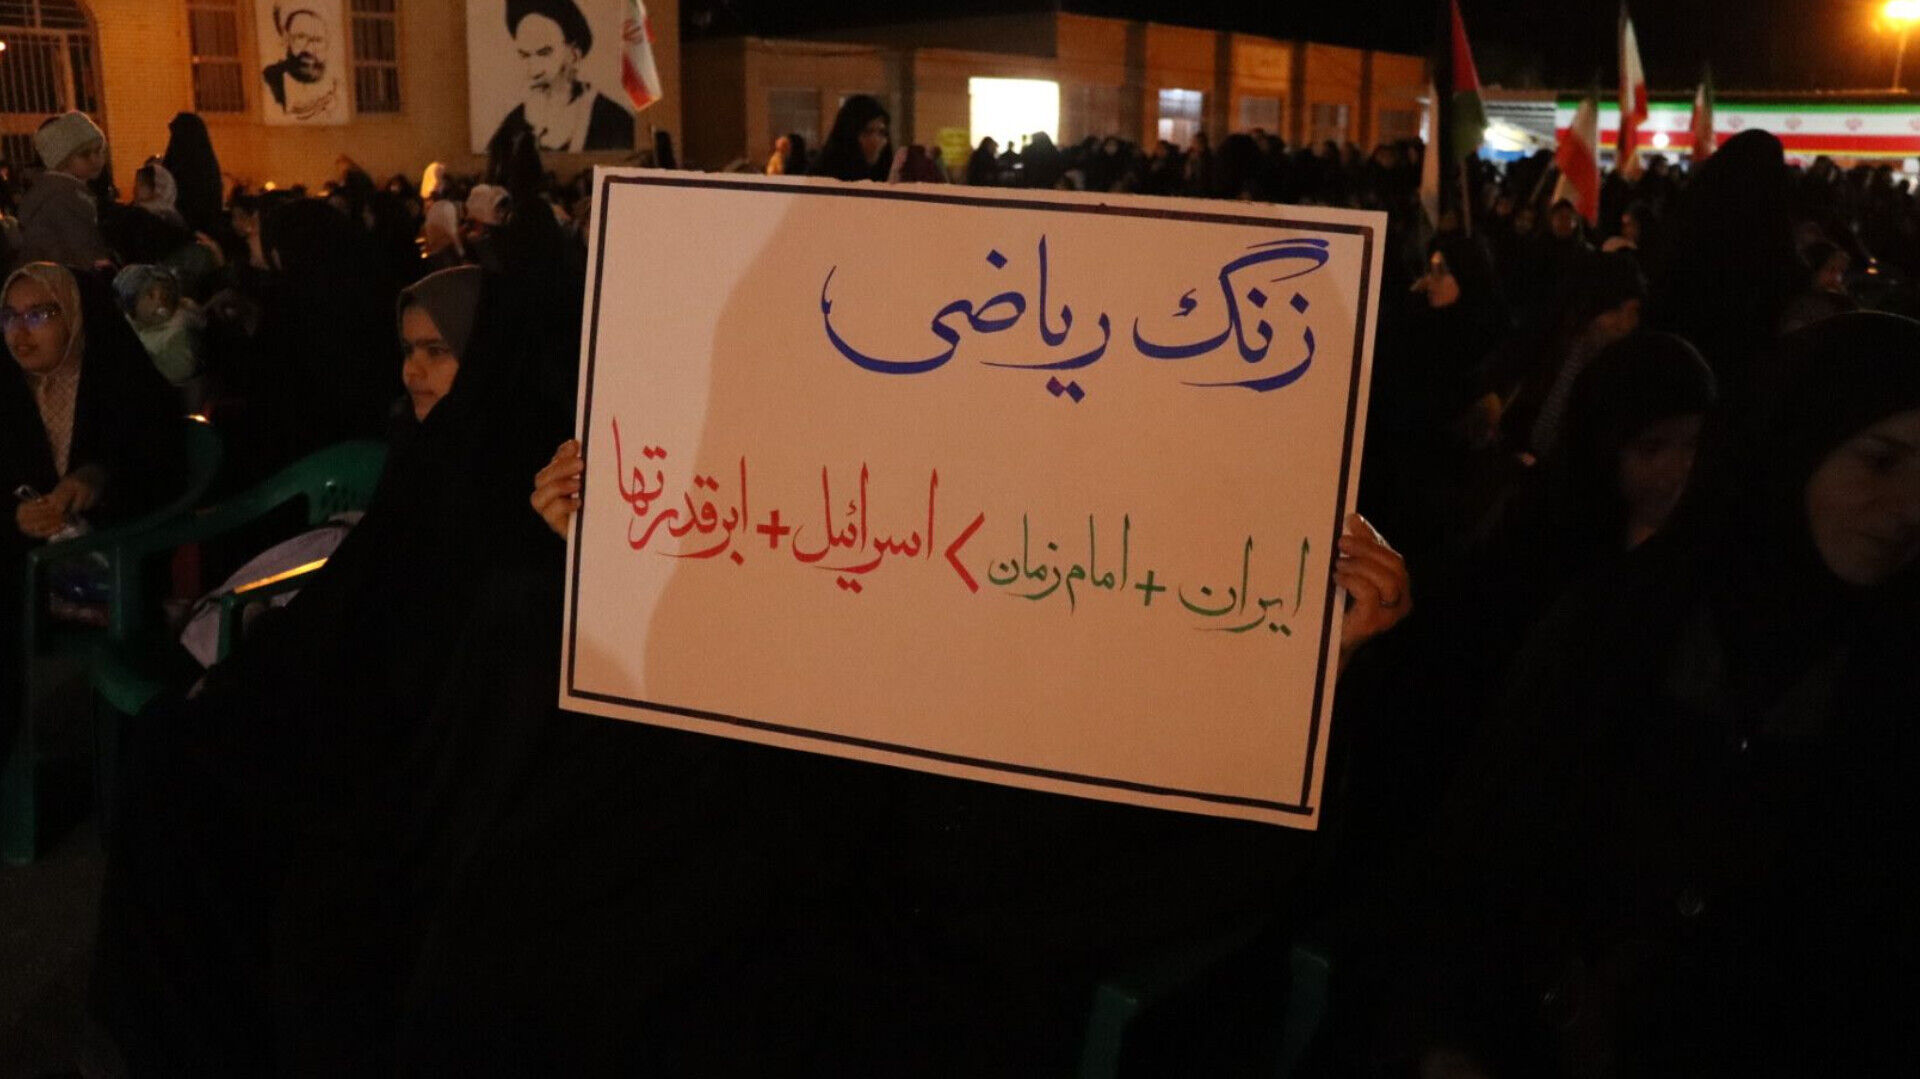 زنگ ریاضی
ایران + امام زمان < اسرائیل + ابرقدرتها